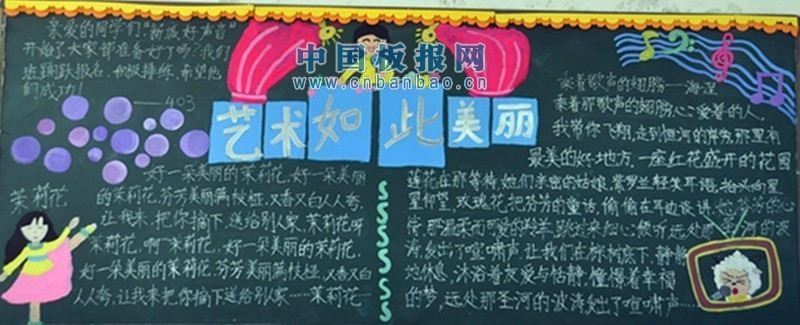 亲爱的同学们"新城好声音"
开始了大家都准备好了吗?我们
班踊跃报名,积极排练,希望他
们成功!
——403
中国板报网
www.cnbanbao.cn
艺术如此美丽
茉莉花
好一朵美丽的茉莉花,好一朵美丽
的茉莉花,芬芳美丽满枝桠,又香又白人人夸,
让我来,把你摘下,送给别人家,茉莉花呀
茉莉花,啊!茉莉花,好一朵美丽的茉莉花,
好一朵美丽的茉莉花,芬芳美丽满枝桠,又香又白
人人夸,让我来把你摘下送给别人家……茉莉花
乘着歌声的翅膀——海涅
乘着那歌声的翅膀,心心爱着的人,
我带你飞翔,走到恒河的岸旁,那里有
最美的好地方,一座红花盛开的花园
莲花在那等待,她们亲密的姑娘,紫罗兰轻笑耳语,抬头向星
星仰望,玫瑰花,把芬芳的童话,偷偷在耳边谈讲,她芬芳的心
那温柔而可爱的羚羊,跳过来细心倾听远处那河的波
涛,发出了喧啸声,让我们在椰树底下,静静
地休息,沐浴着友爱与恬静,憧憬着幸福
的梦,远处那圣河的波涛发出了喧啸声……